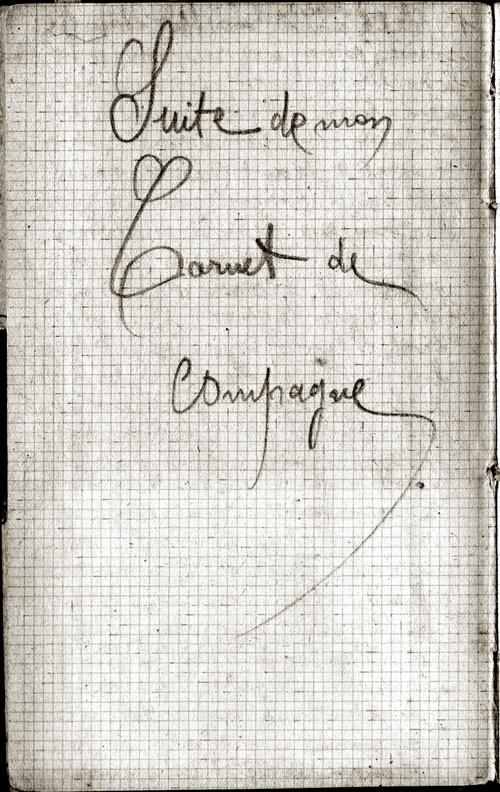 Suite de mon
Carnet de
Campagne